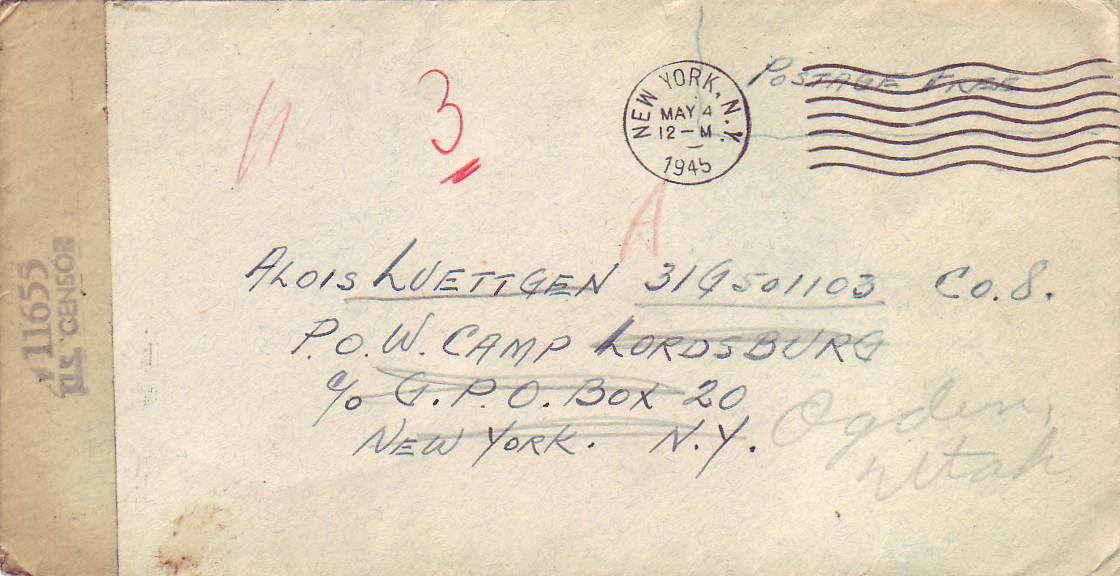 3
NEW YORK, N.Y.
MAY 4
12-M
1945
POSTAGE FREE
A
ALOIS LUETTGEN 31G501103 CO. 8.
P.O.W. CAMP LORDSBURG
c/o G.P.O. BOX 20
NEW YORK. N.Y.
Ogden,
Utah
11655
U.S. CENSOR